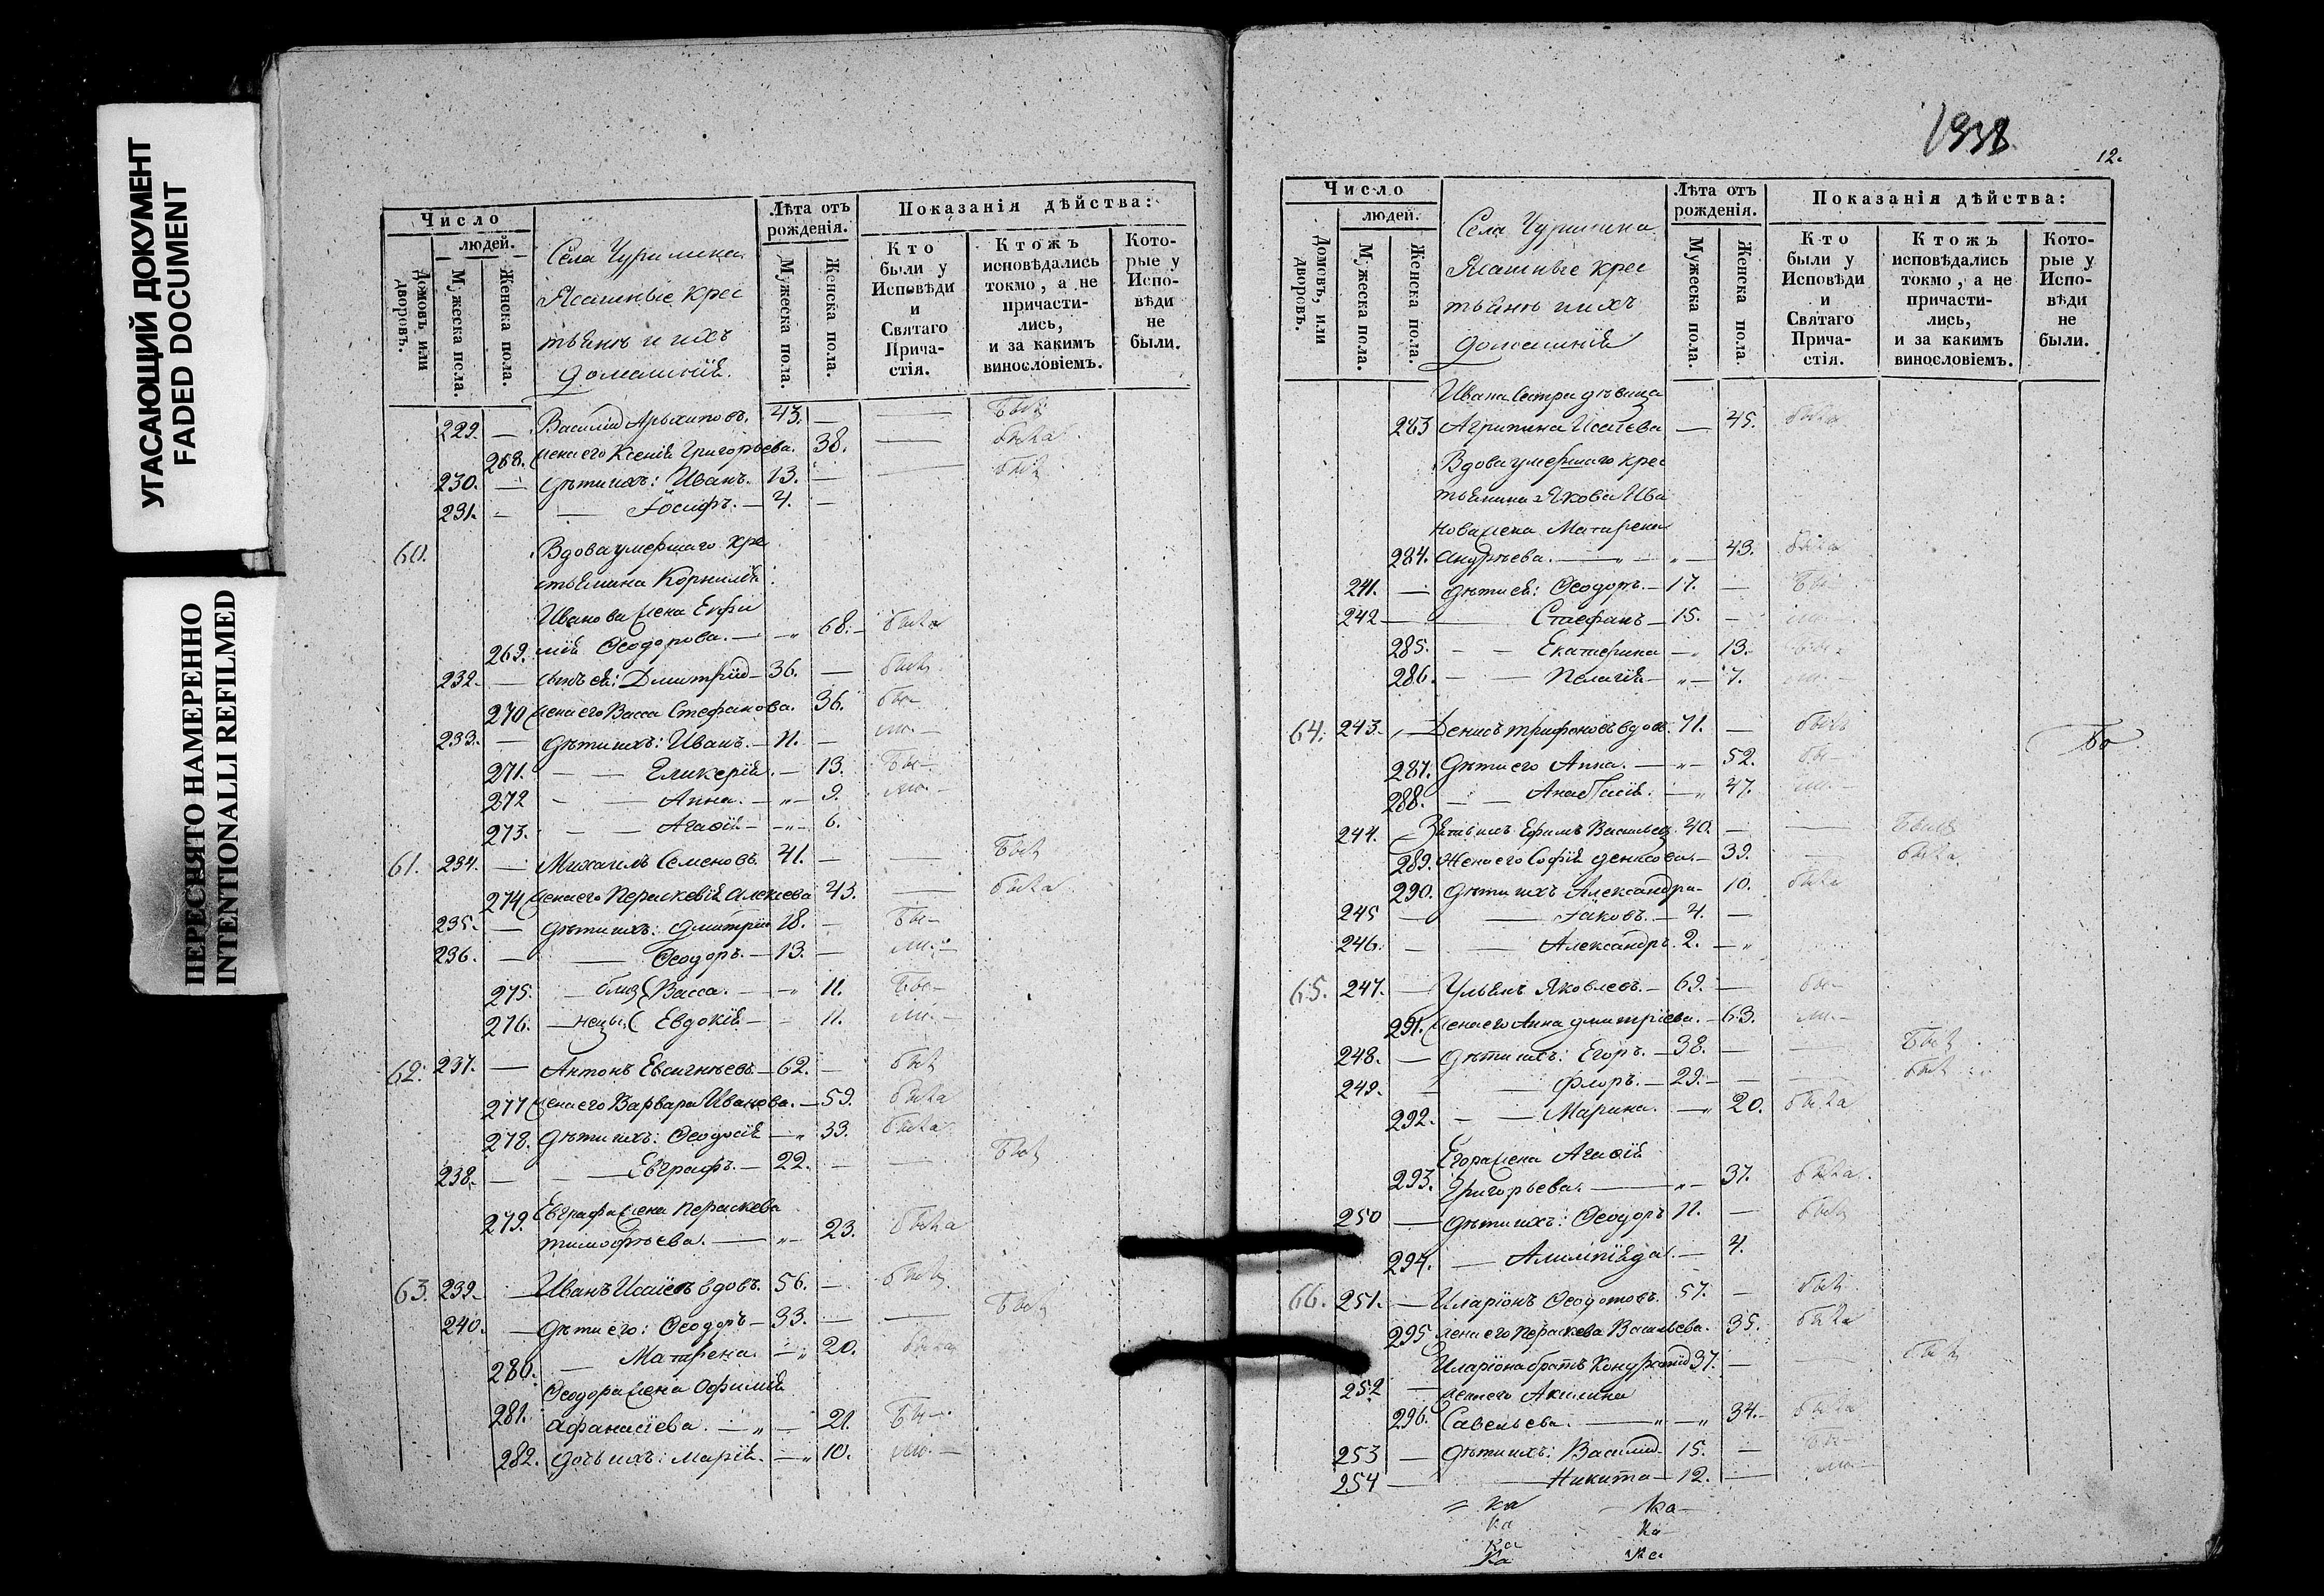 УГАСАЮЩИЙ ДОКУМЕНТ
FADED DOCUMENT
ПЕРЕСНЯТО НАМЕРЕННО
INTENTIONALLI REFILMED
Число
людей.
Домовъ, или дворовъ.
Мужеска пола.
Женска пола.
Села Чурилина
Ясашные крес
тьяне и ихъ
домашнія.
Лѣта отъ рожденія.
Мужеска пола.
Женска пола.
Показанія дѣйства:
Кто были у Исповѣди и Святаго Причастія.
Ктожъ исповѣдались токмо, а не причастились, и за какимъ винословіемъ.
Которые у Исповѣди не были.
229. — Василій Архиповъ. 43. — — былъ
268. жена его Ксенія Григорьева. 38. — была
230. — дѣти ихъ: Иванъ. 13. — — былъ
231. — — Іосифъ. — 4. —
60. Вдова умершаго кре
стьянина Корнилія
Иванова жена Евфи
269. мія Ѳеодорова. — 68. — была
232. — сынъ ея: Димитрій — 36. — былъ
270 жена его Васса Стефанова. 36. бы—
233. — дѣти ихъ: Иванъ. — 11. — ли. —
271. — — Гликерія. — 13. бы—
272 — — Анна. — 9. ли. —
273. — — Агаѳія — 6.
61. 234. — Михаилъ Семеновъ. 41. — — былъ
274 жена его Перасковія Алексѣева 43. — была
235. — дѣти ихъ: Димитрій 18. — бы—
236. — — Ѳеодоръ. — 13. — ли. —
275. — близ Васса. — 11. бы—
276. — нецы Евдокія — 11. ли. —
62. 237. — Антонъ Евсигнѣевъ. — 62. — былъ
277 жена его Варвара Иванова. — 59. была
278. дѣти ихъ: Ѳеодосія — 33. была
238. — — Евграфъ. — 22. — — былъ
Евграфа жена Пераскева
279. Тимофѣева. — 23. была
63. 239. — Иванъ Исаевъ вдовъ. 56. — былъ
240. — дѣти его: Ѳеодоръ — 33. — — былъ
280. — Матрена. — 20. была
Ѳеодора жена Офимія
281. Афанасіева. — 21. бы—
282. дочь ихъ: Марія. — 10. ли —
1338
12.
Число
людей.
Домовъ, или дворовъ.
Мужеска пола.
Женска пола.
Села Чурилина
Ясашные крес
тьяне и ихъ
домашнія
Лѣта отъ рожденія.
Мужеска пола.
Женска пола.
Показанія дѣйства:
Кто были у Исповѣди и Святаго Причастія.
Ктожъ исповѣдались токмо, а не причастились, и за какимъ винословіемъ.
Которые у Исповѣди не были.
Ивана сестра дѣвица
283 Агрипина Исаева — 45. была
Вдова умершаго крес
тьянина Якова Ива
нова жена Матрена
284. Андрѣева. — 43. была
241. — дѣти ея: Ѳеодоръ. — 17. — бы
242 — — Стефанъ — 15. — ли. —
285. — — Екатерина — 13. бы
286. — — Пелагія — 7. ли. —
64. 243. — Денисъ Трифоновъ вдов. 71. — былъ
287. Дѣти его Анна. — 52. бы—
288. — — Анастасія. — 47. ли. —
244. — Зять ихъ Ефимъ Васильевъ 40. — — былъ
289. Жена его Софія Денисова. — 39. — была
290. Дѣти ихъ Александра — 10. была
245 — — Іаковъ. — 4. —
246. — — Александръ. 2. —
65. 247. — Ульянъ Яковлевъ. — 69. — бы—
291. жена его Анна Дмитріева. — 63. ли. —
248. — дѣти ихъ: Егоръ. — 38. — — былъ
249. — — Флоръ. — 29. — — былъ
292. — — Марина. — 20. была
Егора жена Агаѳія
293. Григорьева. — 37. была
250 — дѣти ихъ: Ѳеодоръ 11. — былъ
294. — — 4.
66. 251. — Иларіонъ Ѳеодотовъ. 57. — былъ
295 жена его Пераскева Васильева. 35. была
252 — Иларіона братъ Кондратій 37. — — былъ
жена его Акилина
296. Савельева. — 34. — была
253 — дѣти ихъ: Василій. 15. — бы—
254 — — Никита — 12. — ли —
= ка — ка —
ка ка
ка
ка ка